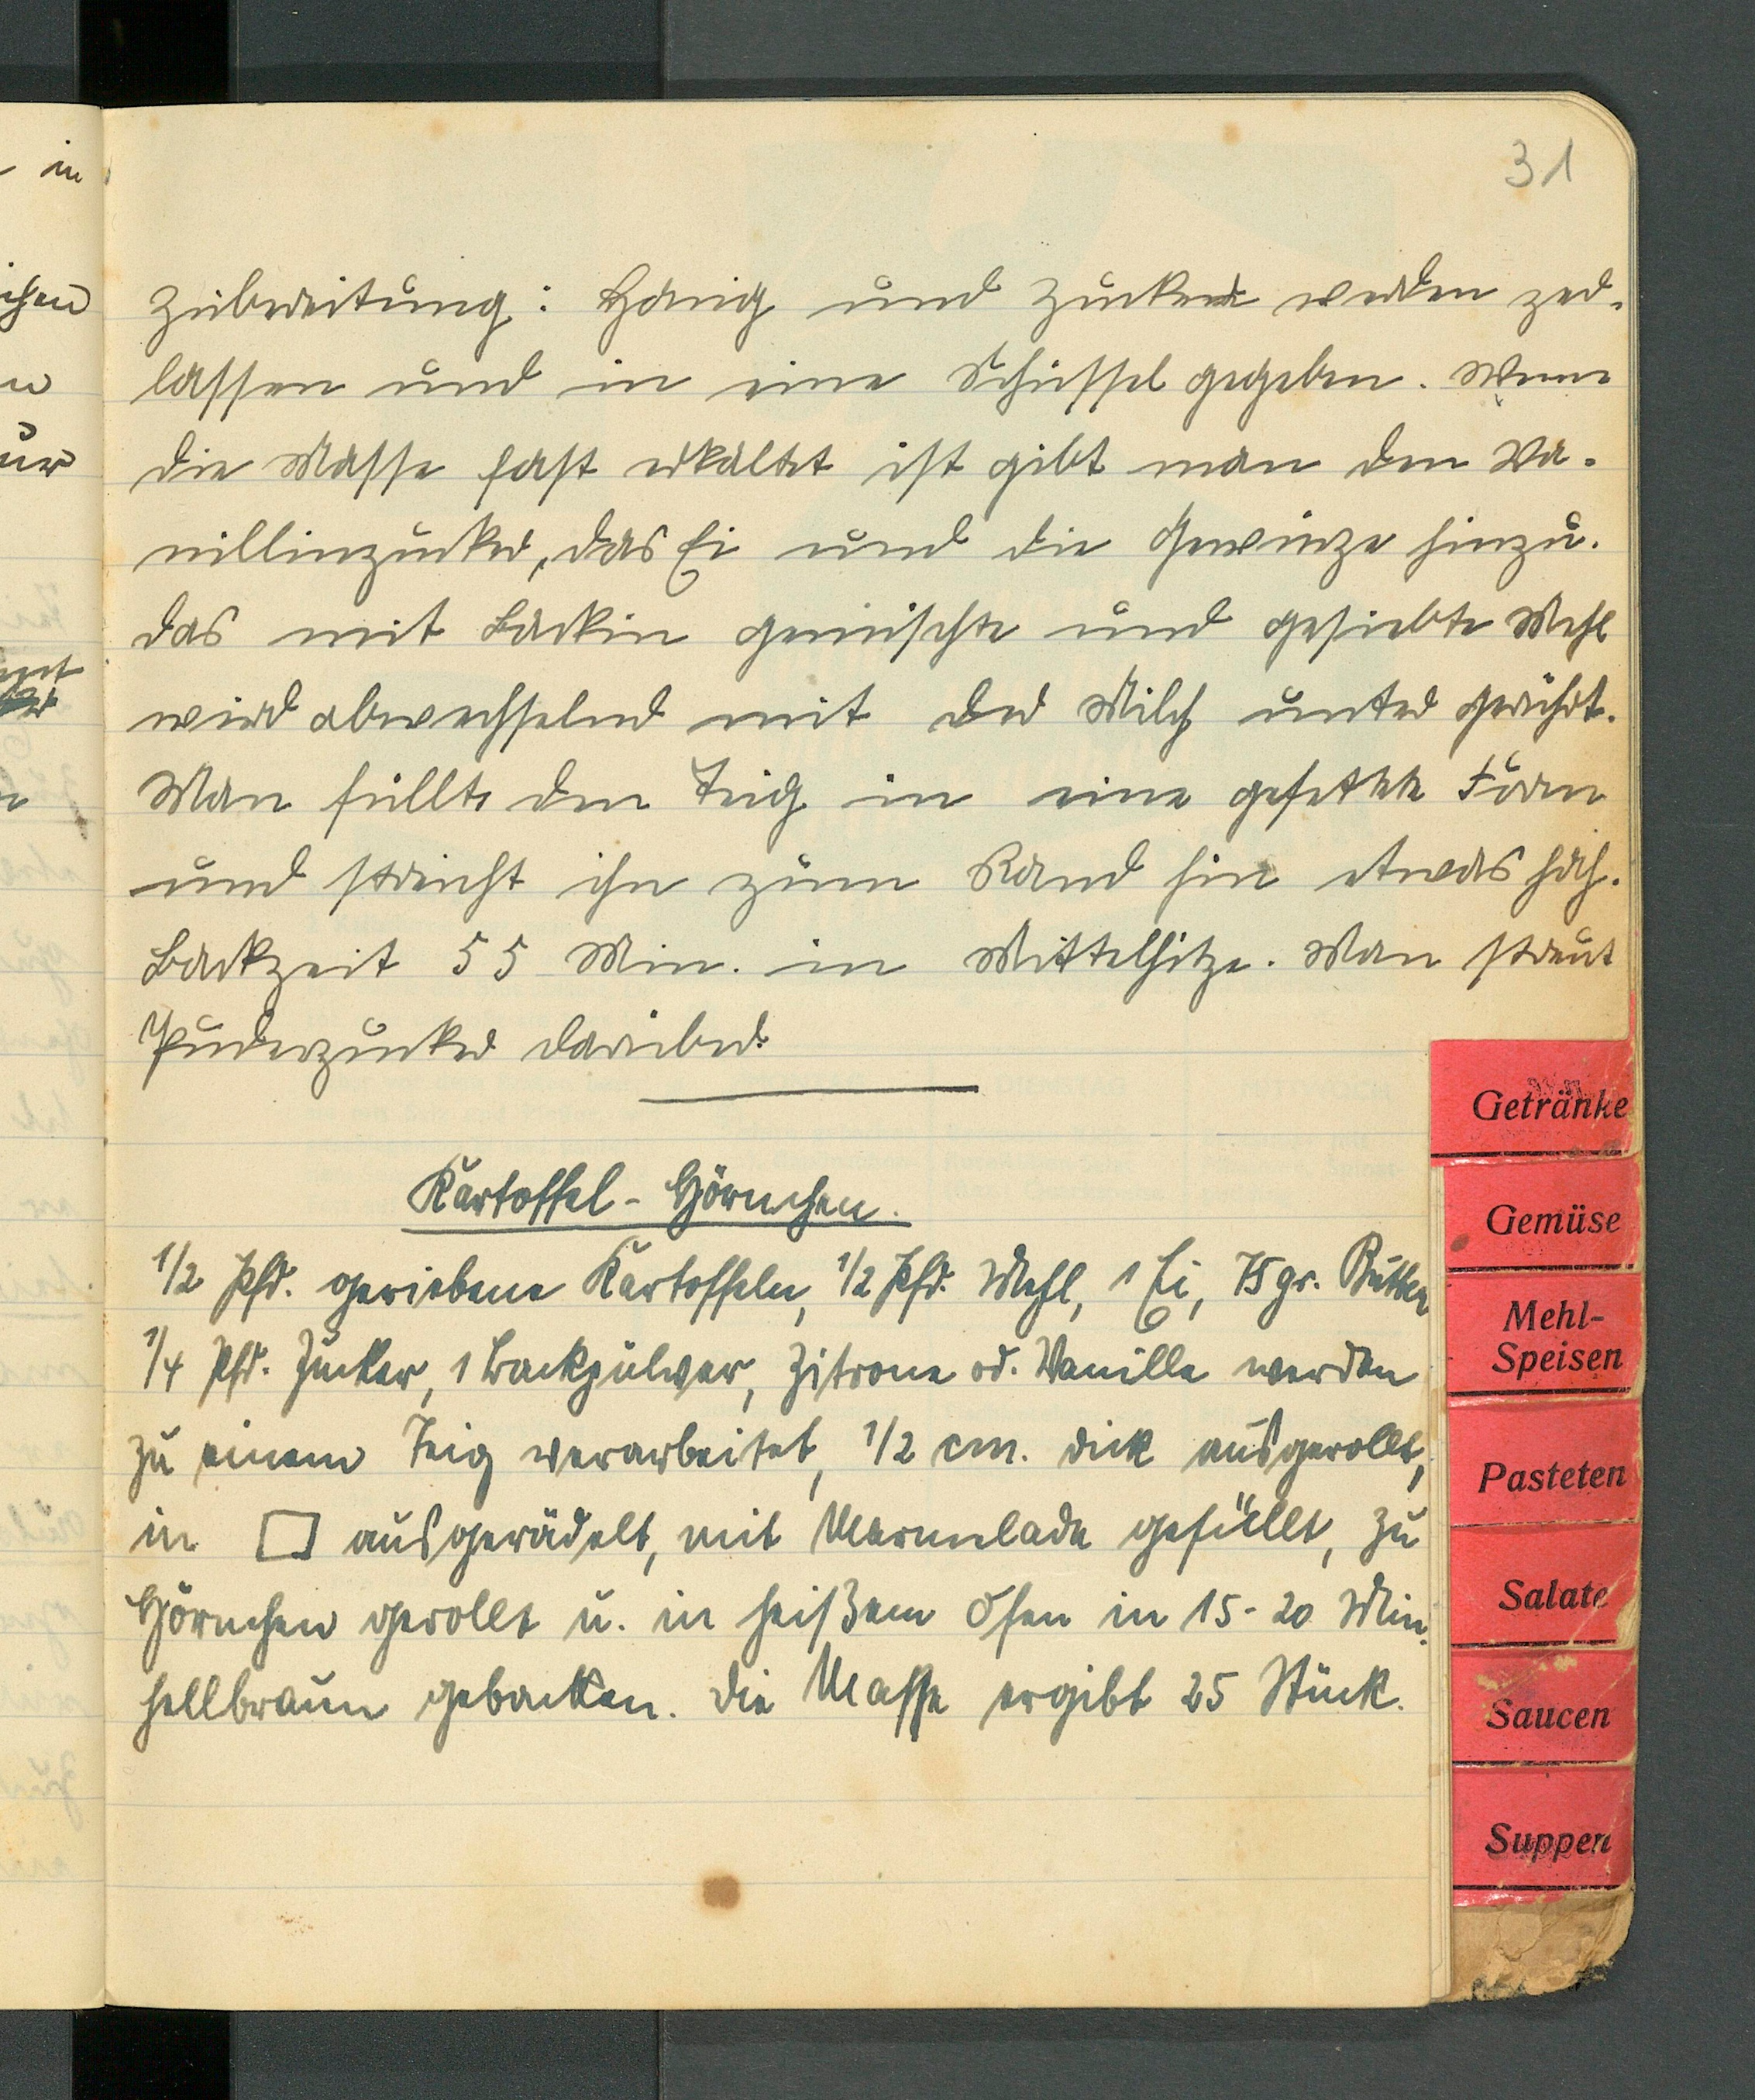 31
Zubereitung: Honig und Zucker werden zer-
lassen und in eine Schüssel gegeben. Wenn
die Masse fast erkaltet ist gibt man den Va-
nillinzucker, das Ei und die Gewürze hinzu.
das mit Backin gemischte und gesiebte Mehl
wird abwechselnd mit der Milch unter gerührt.
Man füllt den Teig in eine gefettete Form
und streicht ihn zum Rand hin etwas hoch.
Backzeit 55 Min. in Mittelhitze. Man streut
Puderzucker darüber.
Kartoffel-Hörnchen.
1/2 Pfd. geriebene Kartoffeln, 1/2 Pfd. Mehl, 1 Ei, 75 gr. Butter
1/4 Pfd. Zucker, 1 Backpulver, Zitrone od. Vanille werden
zu einem Teig verarbeitet, 1/2 cm. dick ausgerollt,
in □ ausgerädelt, mit Marmelade gefüllt, zu
Hörnchen gerollt u. in heißem Ofen in 15-20 Min.
hellbraun gebacken. Die Masse ergibt 25 Stück.
Getränke
Gemüse
Mehl-
Speisen
Pasteten
Salate
Saucen
Suppen
in